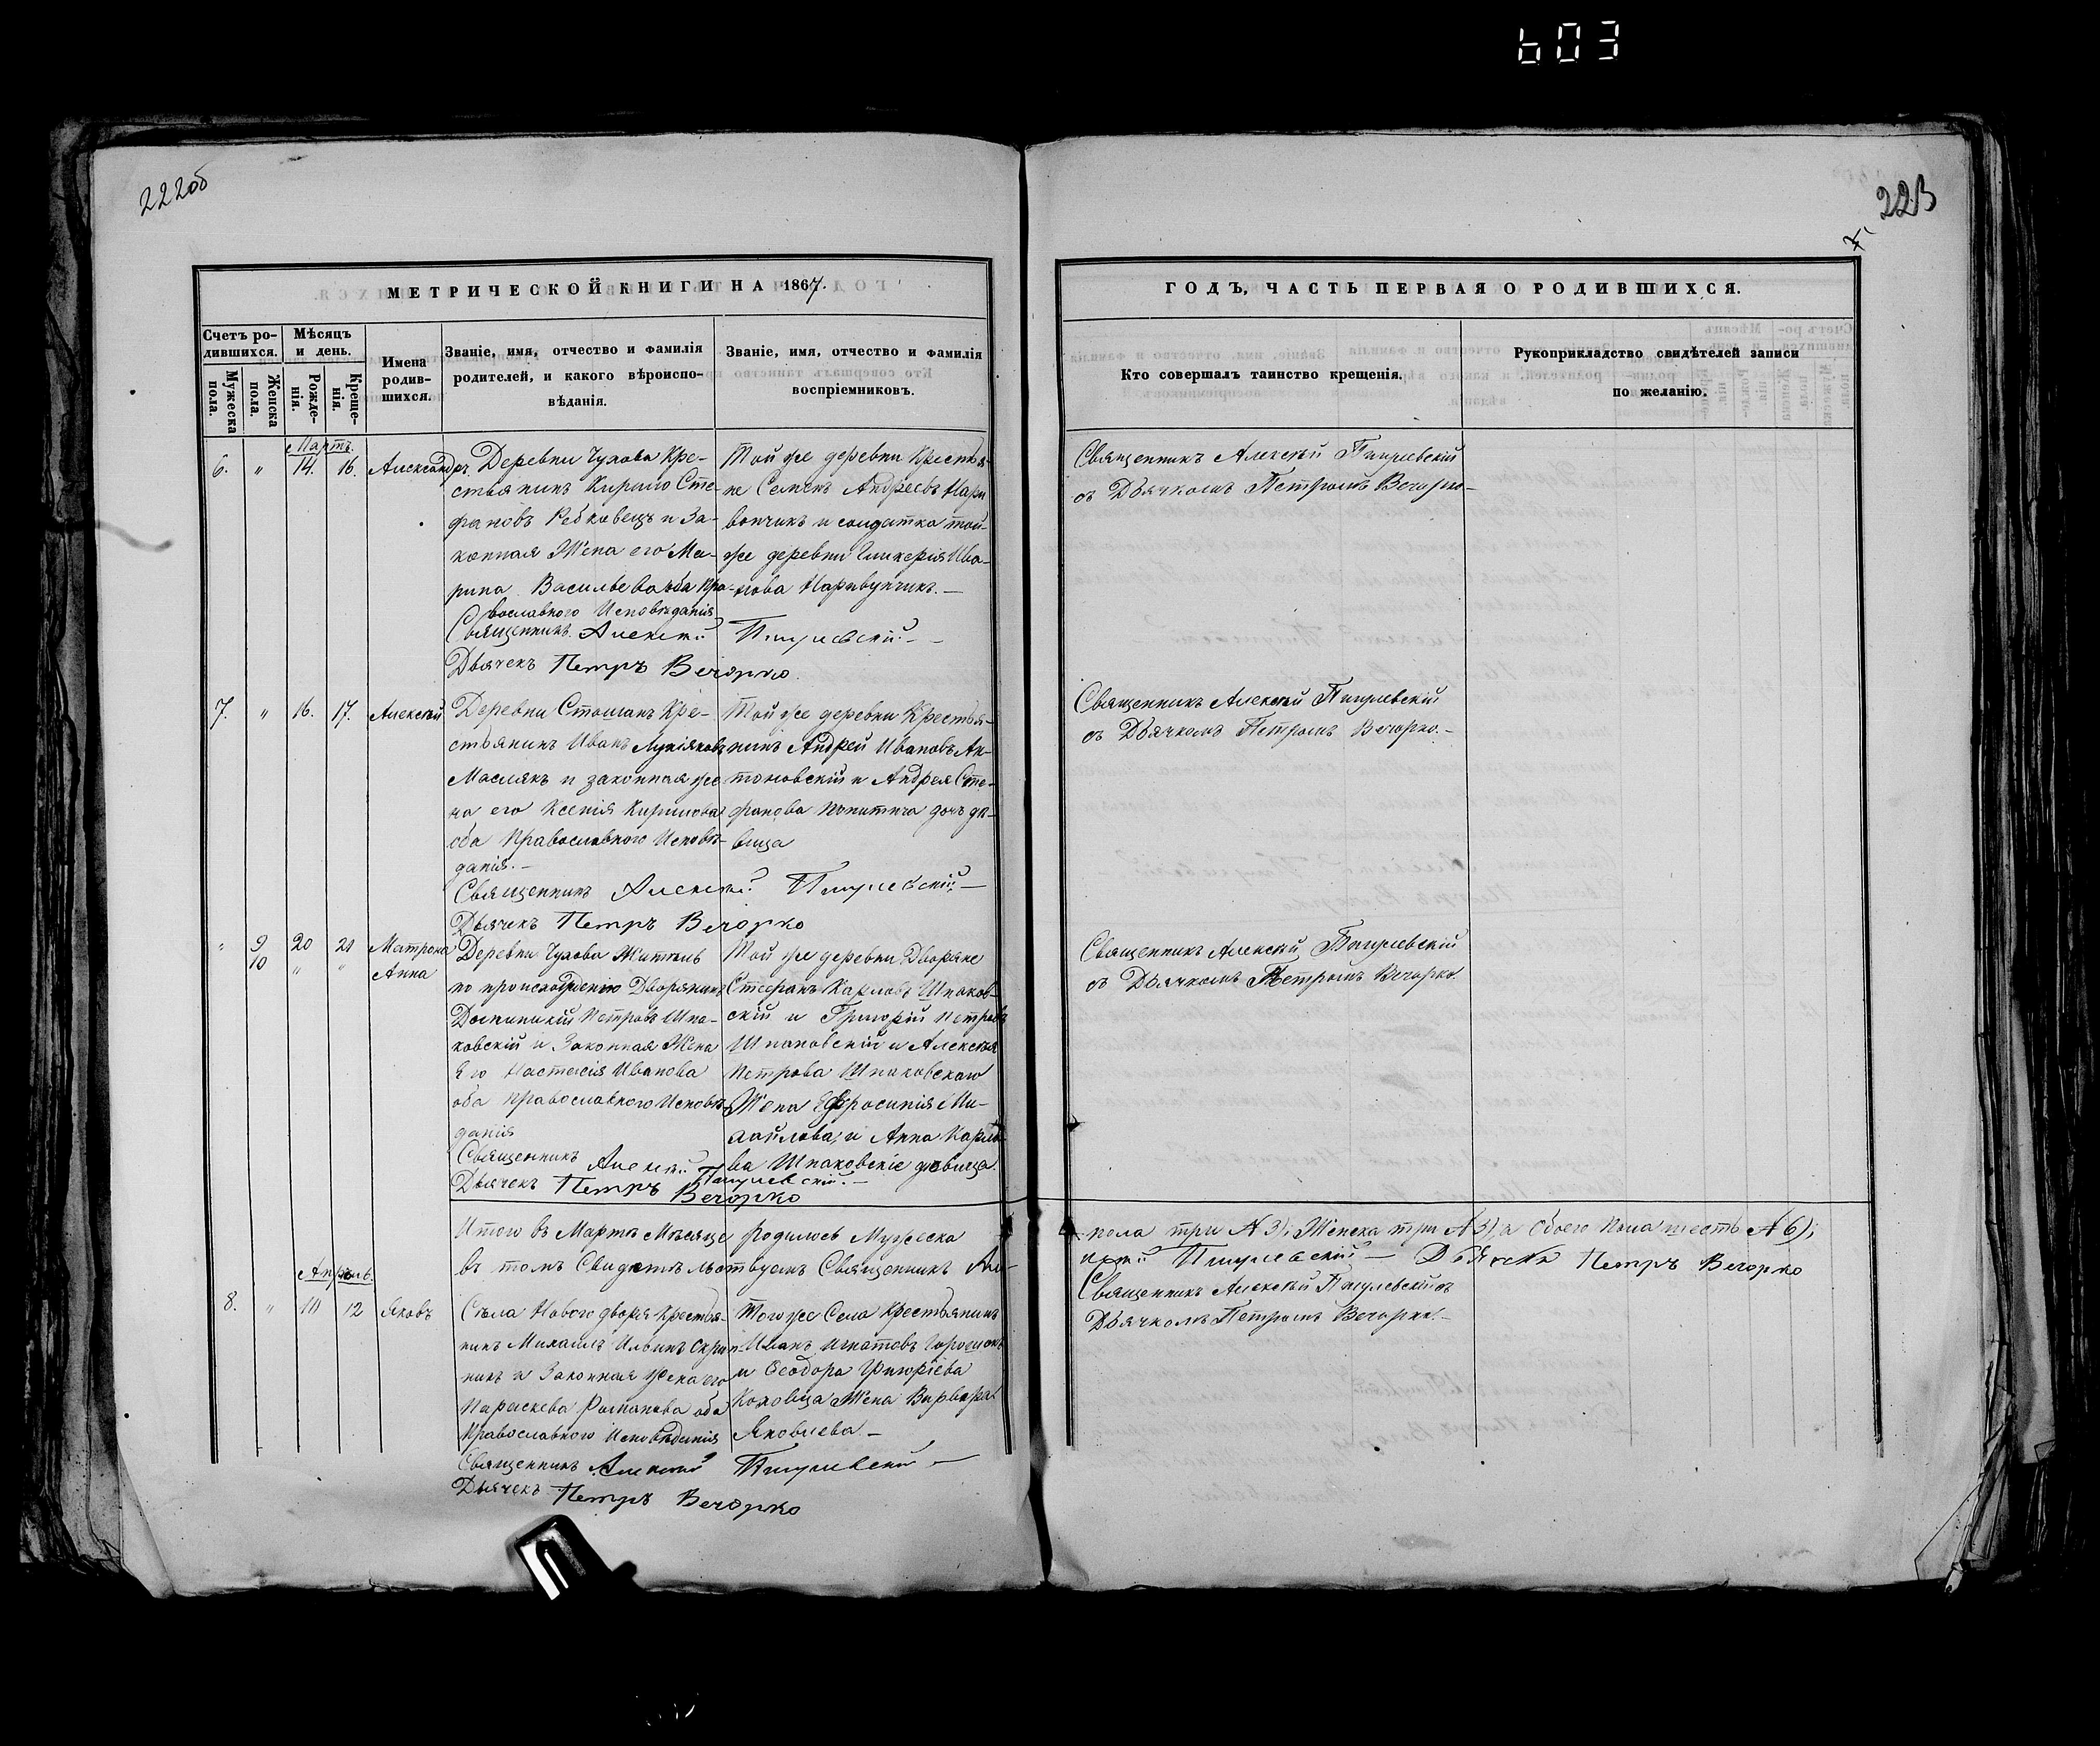 603
222об
223
МЕТРИЧЕСКОЙ КНИГИ НА 1867.
ГОДЪ, ЧАСТЬ ПЕРВАЯ О РОДИВШИХСЯ.
Счетъ ро-
дившихся.
Мѣсяцъ
и день.
Мужеска
пола.
Женска
пола.
Рожде-
нія.
Креще-
нія.
Имена
родив-
шихся.
Званіе, имя, отчество и фамилія
родителей, и какого вѣроиспо-
вѣданія.
Званіе, имя, отчество и фамилія
воспріемниковъ.
Кто совершалъ таинство крещенія.
Рукоприкладство свидѣтелей записи
по желанію.
Мартъ.
6. " 14. 16. Александръ
Деревни Чухова Кре-
стьянинъ Кирило Сте-
фановъ Ребковецъ и За-
конная Жена его Ма-
рина Васильева оба Пра-
вославного Исповѣданія
Священникъ Алексѣй Пигулевскій
Дьячекъ Петръ Вечорко.
Той же деревни Крестья-
не Семенъ Андреевъ
и солдатка той-
же деревни Гликерія Ива-
нова
Священникъ Алексѣй Пигулевскій
съ Дьячкомъ Петромъ Вечорко
7. " 16. 17. Алексѣй
Деревни Стошанъ Кре-
стьянинъ Иванъ
Маслякъ и законная же
на его Ксенія Кирилова
оба Православного Исповѣ-
данія.
Священникъ Алексѣй Пигулевскій
Дьячекъ Петръ Вечорко
Той же деревни Крестья-
нинъ Андрей Ивановъ Ан-
тоновскій и Андрея Сте-
фанова дочь дѣ-
вица
Священникъ Алексѣй Пигулевскій
съ Дьячкомъ Петромъ Вечорко.
" 9 20 21 Матрона
10 " " Анна
Деревни Чухова Житель
по происхожденію Дворянинъ
Петровъ Шпа-
ковскій и Законная Жена
Его Настасія Иванова
оба православного Исповѣ-
данія
Священникъ Алексѣй Пигулевскій.
Дьячекъ Петръ Вечорко
Той же деревни Дворяне
Стефанъ Карловъ Шпаков-
скій и Григорій Петровъ
Шпаковскій и Алексѣя
Петрова Шпаковскаго
Жена Ефросинія Ми-
хайлова, и Анна Карло-
ва Шпаковскіе дѣвица.
Священникъ Алексѣй Пигулевскій
съ Дьячкомъ Петромъ Вечорко.
Итого въ Мартѣ Мѣсяце родилось Мужеска пола три № 3); Женска три № 3), а обоего пола шесть № 6);
въ томъ Свидѣтельствуемъ Священникъ Алексѣй Пигулевскій Дьячекъ Петръ Вечорко
Апрѣль.
8. " 10 12 Яковъ
Села Нового двора Крестья-
нинъ Михаилъ Ильинъ
и Законная жена его
Параскева Романова оба
Православного Исповѣданія
Священникъ Алексѣй Пигулевскій
Дьячекъ Петръ Вечорко
Того же Села Крестьянинъ
Иванъ Игнатовъ
и Ѳеодора Григоріева
Жена Варвара
Яковлева
Священникъ Алексѣй Пигулевскій съ
Дьячкомъ Петромъ Вечорко.